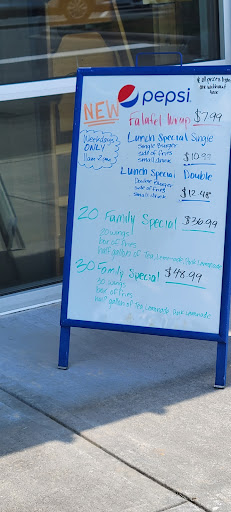 pepsi
* All prices listed
are without
tax
NEW
Falafel Wrap $7.99
Weekdays
ONLY
11am-2pm
Lunch Special Single
Single Burger
side of fries
small drink $10.99
Lunch Special Double
Double Burger
side of fries
small drink $12.48
20 Family Special $36.99
20 wings
box of fries
half gallon of Tea, Lemonade, Pink Lemonade
30 Family Special $48.99
30 wings
box of fries
half gallon of tea, lemonade, Pink Lemonade